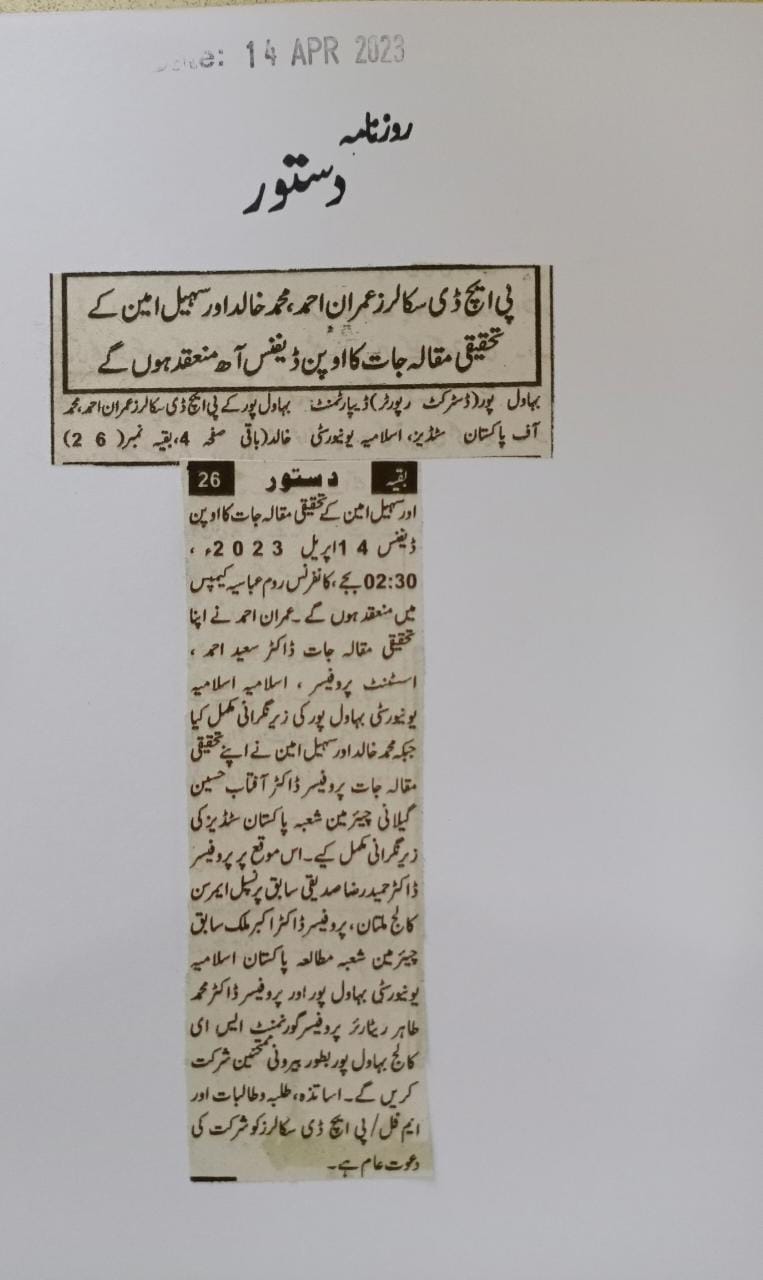 Date: 14 APR 2023
روزنامہ
دستور
پی ایچ ڈی سکالرز عمران احمد، محمد خالد اور سہیل امین کے
تحقیقی مقالہ جات کا اوپن ڈیفنس آج منعقد ہوں گے
بہاول پور (ڈسٹرکٹ رپورٹر) ڈیپارٹمنٹ
آف پاکستان سٹڈیز، اسلامیہ یونیورٹی
بہاول پور کے پی ایچ ڈی سکالرز عمران احمد، محمد
خالد (باقی صفحہ 4، بقیہ نمبر( 6 2)
بقیہ دستور 26
اور سہیل امین کے تحقیقی مقالہ جات کا اوپن
ڈیفنس 14 اپریل 2023ء ،
02:30 بجے، کانفرنس روم عباسیہ کیمپس
میں منعقد ہوں گے ۔ عمران احمد نے اپنا
تحقیقی مقالہ جات ڈاکٹر سعید احمد ،
اسٹنٹ پروفیسر ، اسلامیہ اسلامیہ
یونیورٹی بہاول پور کی زیر نگرانی مکمل کیا
جبکہ محمد خالد اور سہیل امین نے اپنے تحقیقی
مقالہ جات پروفیسر ڈاکٹر آفتاب حسین
گیلانی چیئرمین شعبہ پاکستان سٹڈیز کی
زیر نگرانی مکمل کیے۔ اس موقع پر پروفیسر
ڈاکٹر حمید رضا صدیقی سابق پرنسپل ایمرسن
کالج ملتان، پروفیسر ڈاکٹر اکبر ملک سابق
چیئرمین شعبہ مطالعہ پاکستان اسلامیہ
یونیورٹی بہاول پور اور پروفیسر ڈاکٹر محمد
طاہر ریٹائرز پروفیسر گورنمنٹ ایس ای
کالج بہاول پور بطور بیرونی ممتحنین شرکت
کریں گے۔ اساتذہ، طلبہ و طالبات اور
ایم فل/ پی ایچ ڈی سکالرز کو شرکت کی
دعوت عام ہے۔